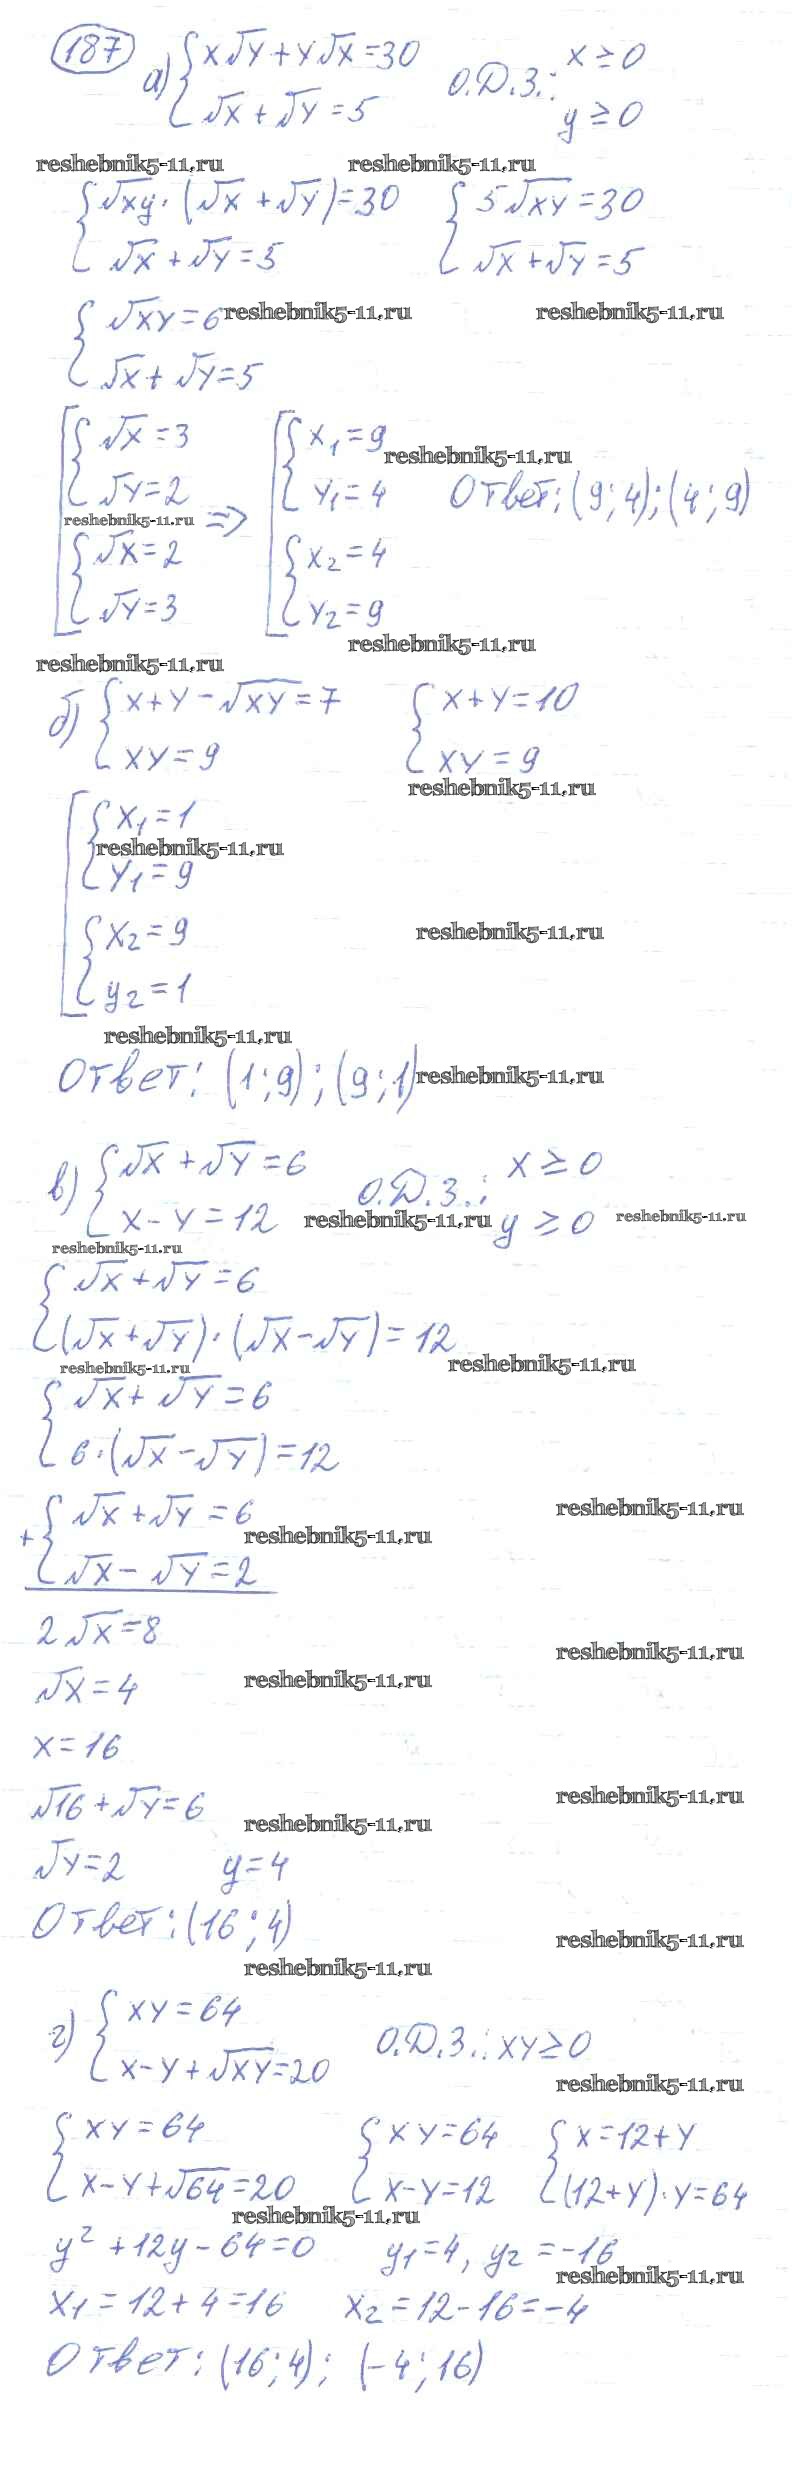 187
а) { x√y + y√x = 30
√x + √y = 5
О.Д.З.: x ≥ 0
y ≥ 0
reshebnik5-11.ru reshebnik5-11.ru
{ √xy · (√x + √y) = 30 { 5√xy = 30
√x + √y = 5 √x + √y = 5
{ √xy = 6 reshebnik5-11.ru reshebnik5-11.ru
√x + √y = 5
[ { √x = 3 [ { x₁ = 9 reshebnik5-11.ru
√y = 2 y₁ = 4 Ответ: (9; 4); (4; 9)
reshebnik5-11.ru =>
{ √x = 2 { x₂ = 4
√y = 3 y₂ = 9
reshebnik5-11.ru
reshebnik5-11.ru
б) { x + y − √xy = 7 { x + y = 10
xy = 9 xy = 9
reshebnik5-11.ru
[ { x₁ = 1
reshebnik5-11.ru
y₁ = 9
{ x₂ = 9 reshebnik5-11.ru
y₂ = 1
reshebnik5-11.ru
Ответ: (1; 9); (9; 1) reshebnik5-11.ru
в) { √x + √y = 6 О.Д.З.: x ≥ 0
x − y = 12 reshebnik5-11.ru y ≥ 0 reshebnik5-11.ru
reshebnik5-11.ru
{ √x + √y = 6
(√x + √y) · (√x − √y) = 12
reshebnik5-11.ru reshebnik5-11.ru
{ √x + √y = 6
6 · (√x − √y) = 12
+ { √x + √y = 6 reshebnik5-11.ru
reshebnik5-11.ru
√x − √y = 2
2√x = 8
reshebnik5-11.ru
√x = 4 reshebnik5-11.ru
x = 16
√16 + √y = 6 reshebnik5-11.ru
reshebnik5-11.ru
√y = 2 y = 4
Ответ: (16; 4)
reshebnik5-11.ru
reshebnik5-11.ru
г) { xy = 64
x − y + √xy = 20
О.Д.З.: xy ≥ 0
reshebnik5-11.ru
{ xy = 64 { xy = 64 { x = 12 + y
x − y + √64 = 20 x − y = 12 (12 + y) · y = 64
reshebnik5-11.ru
y² + 12y − 64 = 0 y₁ = 4, y₂ = −16
reshebnik5-11.ru
x₁ = 12 + 4 = 16 x₂ = 12 − 16 = −4
Ответ: (16; 4); (−4; 16)